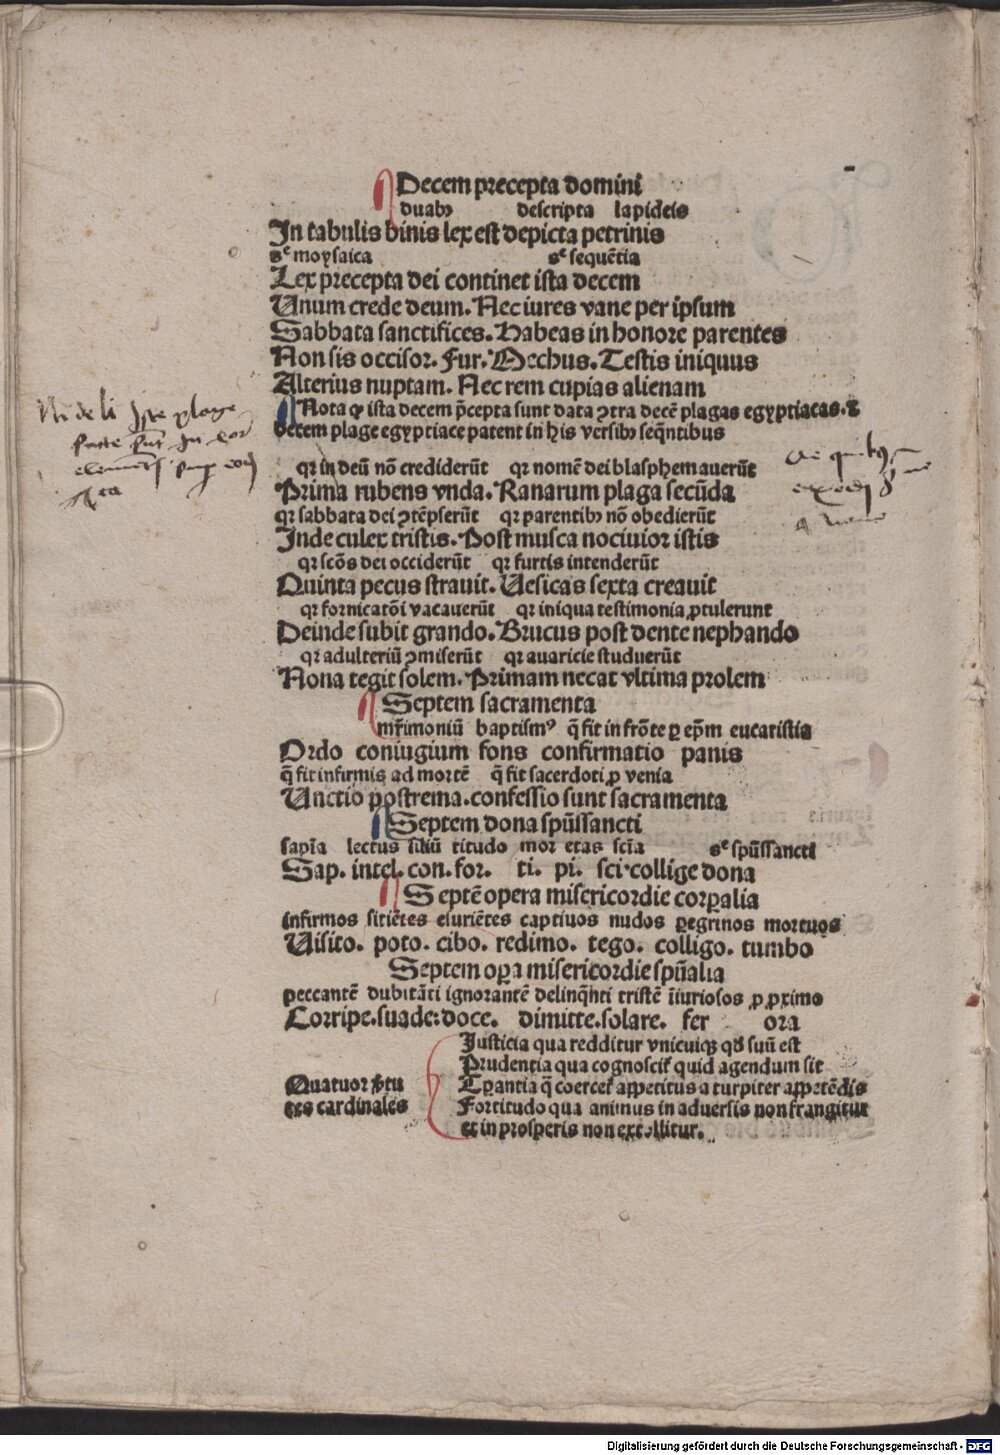 Decem precepta domini
duabꝫ descripta lapideis
In tabulis binis lex est depicta petrinis
sᵉ moysaica sᵉ sequētia
Lex precepta dei continet ista decem
Unum crede deum. Nec iures vane per ipsum
Sabbata sanctifices. Habeas in honore parentes
Non sis occisor. Fur. Mechus. Testis iniquus
Alterius nuptam. Nec rem cupias alienam
Nota ꝙ ista decem p̄cepta sunt data ꝯtra decē plagas egyptiacas. ⁊
decem plage egyptiace patent in his versibꝫ seq̄ntibus
qꝛ in deū nō crediderūt qꝛ nomē dei blasphemauerūt
Prima rubens vnda. Ranarum plaga secūda
qꝛ sabbata dei ꝯtēpserūt qꝛ parentibꝫ nō obedierūt
Inde culex tristis. Post musca nociuior istis
qꝛ scōs dei occiderūt qꝛ furtis intenderūt
Quinta pecus strauit. Uesicas sexta creauit
qꝛ fornicatōi vacauerūt qꝛ iniqua testimonia ꝓtulerunt
Deinde subit grando. Brucus post dente nephando
qꝛ adulteriū ꝯmiserūt qꝛ auaricie studuerūt
Nona tegit solem. Primam necat vltima prolem
Septem sacramenta
mr̄imoniū baptismꝰ q̄ fit in frōte ꝑ ep̄m eucaristia
Ordo coniugium fons confirmatio panis
q̄ fit infirmis ad mortē q̄ fit sacerdoti ꝓ venia
Unctio postrema. confessio sunt sacramenta
Septem dona spūssancti
sapīa lectus siliū titudo mor etas scīa sᵉ spūssancti
Sap. intel. con. for. ti. pi. sci. collige dona
Septē opera misericordie corꝑalia
infirmos sitiētes esuriētes captiuos nudos ꝑegrinos mortuos
Uisito. poto. cibo. redimo. tego. colligo. tumbo
Septem oꝑa misericordie spūalia
peccantē dubitāti ignorantē delinq̄nti tristē iīuriosos ꝓ ꝓximo
Corripe. suade: doce. dimitte. solare. fer ora
Quatuor v̄tu
tes cardinales
Justicia qua redditur vnicuiqꝫ qđ suū est
Prudentia qua cognoscit᷑ quid agendum sit
Tꝑantia q̄ coercet᷑ appetitus a turpiter appetēdis
Fortitudo qua animus in aduersis non frangitur
et in prosperis non extollitur.
Digitalisierung gefördert durch die Deutsche Forschungsgemeinschaft - DFG